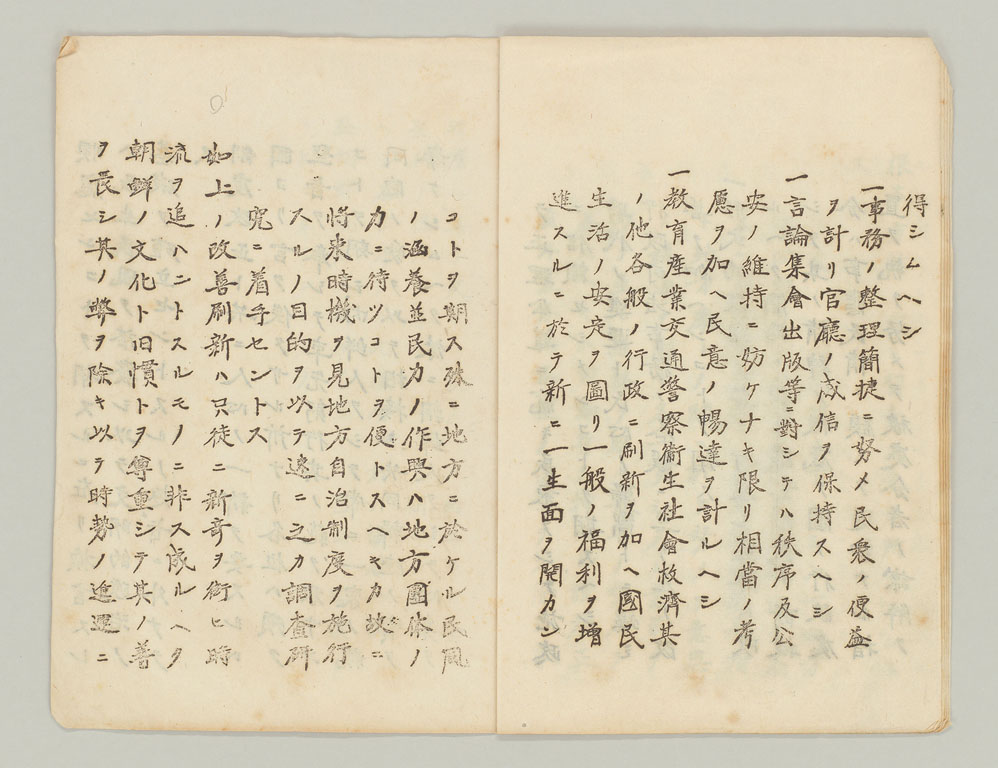 得シムヘシ
一事務ノ整理簡捷ニ努メ民衆ノ便益
ヲ計リ官廳ノ威信ヲ保持スヘシ
一言論集會出版等ニ對シテハ秩序及公
安ノ維持ニ妨ケナキ限リ相當ノ考
慮ヲ加ヘ民意ノ暢達ヲ計ルヘシ
一教育産業交通警察衞生社會救濟其
ノ他各般ノ行政ニ刷新ヲ加ヘ國民
生活ノ安定ヲ圖リ一般ノ福利ヲ増
進スルニ於テ新ニ一生面ヲ開カン
コトヲ期ス殊ニ地方ニ於ケル民風
ノ涵養並民力ノ作興ハ地方團体ノ
力ニ待ツコトヲ便トスヘキカ故ニ
将来時機ヲ見地方自治制度ヲ施行
スルノ目的ヲ以テ速ニ之カ調査研
究ニ着手セントス
如上ノ改善刷新ハ只徒ニ新奇ヲ衒ヒ時
流ヲ追ハントスルモノニ非ス成ルヘク
朝鮮ノ文化ト旧慣トヲ尊重シテ其ノ善
ヲ長シ其ノ弊ヲ除キ以テ時勢ノ進運ニ